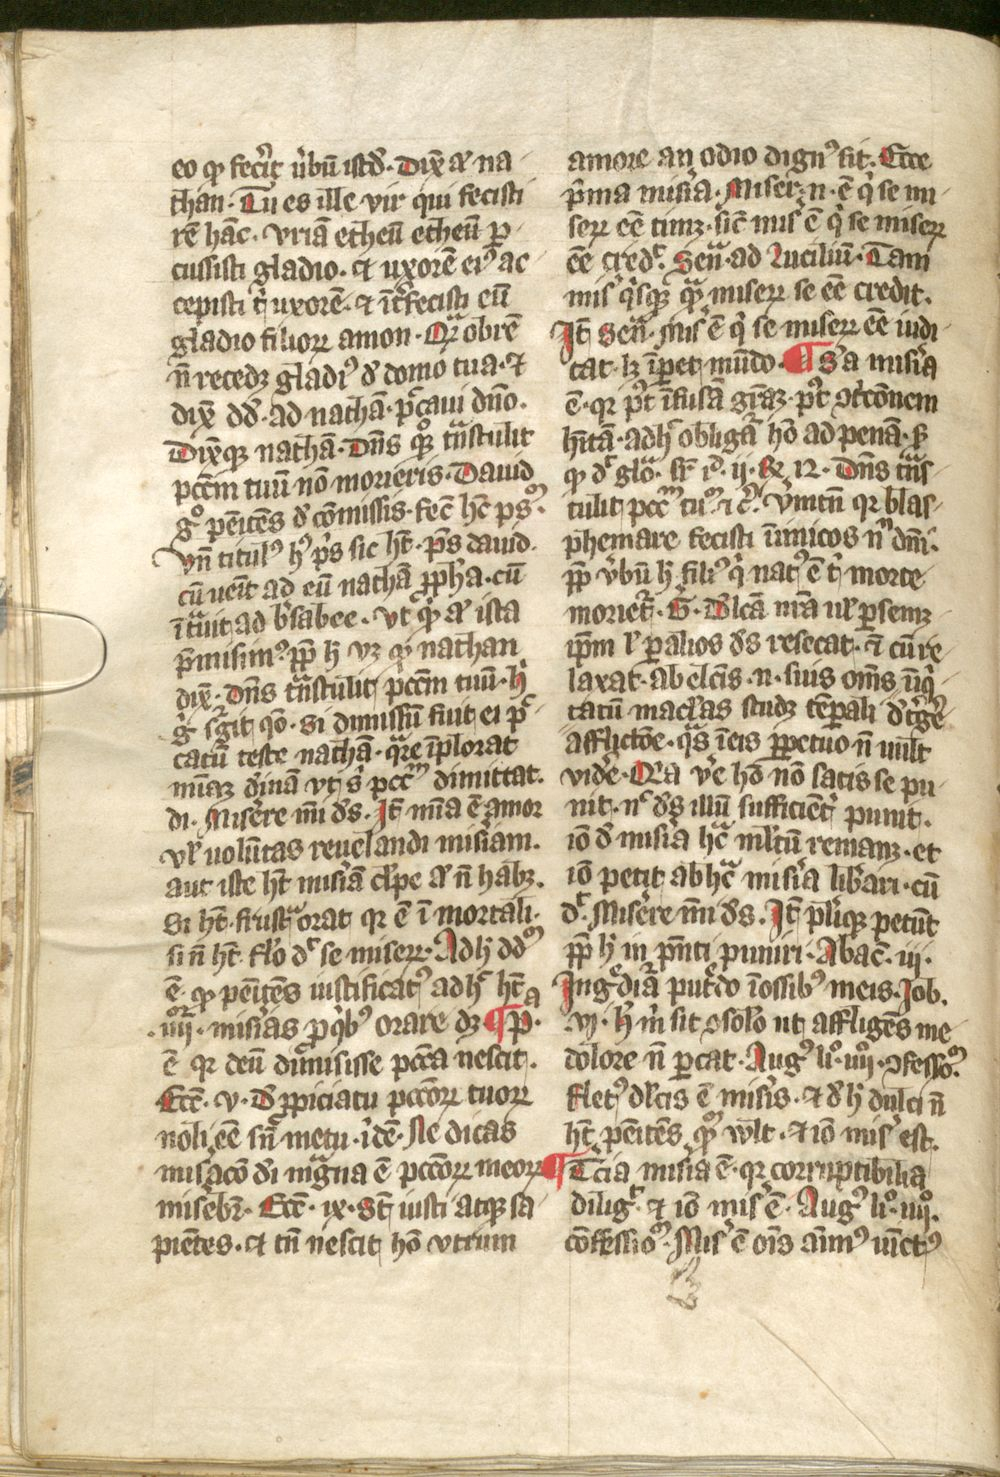 eo ꝙ fecit v̓bū istđ. Dix̄ aͤ na-
than. Tu es ille vir qui fecisti
rē hāc. vriā etheū etheū ꝑ-
cussisti gladio. et uxorē eiꝰ ac
cepisti t uxorē. et īt̓fecisti eū
gladio filioꝝ amon. Qͣm obrē
n̄ recedꝫ gladiꝰ đ domo tua. et
dix̄ dđ. ad nathā. pͨcaui dn̄o.
Dixꝗꝫ nathā. Dn̄s qͦꝫ tͣnstulit
pccͫ tuū nō morieris. Dauid
gͦ penitēs đ cōmissis. fecͭ hͨ psͫ.
vn̄ titulꝰ hꝰ ps̓ sic hꝫ. ps̄ dauid.
cū ueīt ad eū nathā ꝓph̓a. cū
īt̓uit ad b̓sabee. vt
p̓misimꝰ. ꝓp̄ ħ vꝫ ꝙ nathan
dix̄. Dn̄s tͣnstulit pccͫ tuū. ħ
si dimissū fuit ei pͨ-
catū teste nathā. qͣre īplorat
dīnā vt pccͫ dimittat.
di. Miser̄e mi đs. It̄ mīa ē amor
vel̓ uolūtas reuelandi miſiam.
aut iste hꝫ misiā cl̓pe aͤ n̄ habꝫ.
Si hꝫ. frustͣ orat qꝛ ē ī mortali.
si n̄ hꝫ. fl̓o đͬ se miseꝝ. Ad ħ đđͫ
ē ꝙ penitēs iustificatꝰ adhͨ hꝫ
iiiiᵒʳ. miſias ꝓ qͥbꝰ orare dꝫ ¶ pͣ.
ē qꝛ deū dimisisse pccͣ nescit.
Eccͨ. v. De ꝓpiciatu pccōꝝ tuoꝝ
noli eē sn̄ metu. idē. Ne dicas
misͣcō di mͣgna ē pccōꝝ meoꝝ
miseb̓. Eccͨ. ix. St̄ iusti atqꝫ sa
piētes. et tn̄ nescit hō vtrum
amore an odio dignꝰ sit. Ecce
p̓ma misia. Miser. n. ē qͥ se mi
seꝝ eē timꝫ. sic̄ mis̓ ē qͥ se miseꝝ
eē credͭ. Senͣ. ad Lucilium. Tam
mis̓ qͥsꝗꝫ qͣm miseꝝ se eē credit.
It̄ senͣ. mis̓ ē qͥ se miseꝝ eē iudi
cat. lꝫ īpet mūdo. ¶ Sͣ misia
ē. qꝛ p̓t īfusā grāꝫ. p̓t ꝯtcōnem
hītā. adhͨ obligͣt hō ad penā. s
ꝙ đͬ glō. sͬ ii. Rͬ 12. Dn̄s tͣns
tulit pccͫ tuͫ. et c̓. Vm̄tn̄ qꝛ blas-
phemare fecisti inimicos n̄ dn̄i.
ꝓp̄ v̓bū ħ filiꝰ qͥ natꝰ ē t morte
moriet̓. G. Dl̓cā nr̄a vl̓ ꝑ semꝫ
ip̄m l̓ ꝑ alios đs resecat. et cū re
laxat. ab elc̄is. n. suis om̄s īiqͥ-
tatū macl̓as studꝫ tēꝑali
afflictōe. qͣs ī eis ꝑpetuo n̄ uult
vid̓e. Qꝛa v̓e hō nō satis se pu-
nit. nͨ đs illū sufficient̓ punit.
iō đ misia hͨ ml̓tū remanꝫ. et
iō petit ab hͨ misia lib̓ari. cū
đͬ. Miser̄e mi đs. It̄ pl̓iqꝫ petūt
ꝓp̄ ħ in pn̄ti puniri. Abacͨ. iii.
Ingͤdiaͬ putͤdo ī ossibꝰ meis. Job.
vi. Hͨ m̓ sit ꝯsolo ut affligēs me
dolore n̄ ꝑcat. Augꝰ liͦ. iiiiͦ. ꝯfessoͫ.
fletꝰ dl̓cis ē mis̓is. et đ ħ dulci n̄
hꝫ penitēs qͫ vult. et iō mis̓ est.
¶ Tcia misia ē. qꝛ corruptibilia
diligͭ. et iō mis̓ ē. Augꝰ liͦ. iiiiͦ.
cōfessioͫ. Mis̓ ē om̄s animꝰ vīctꝰ